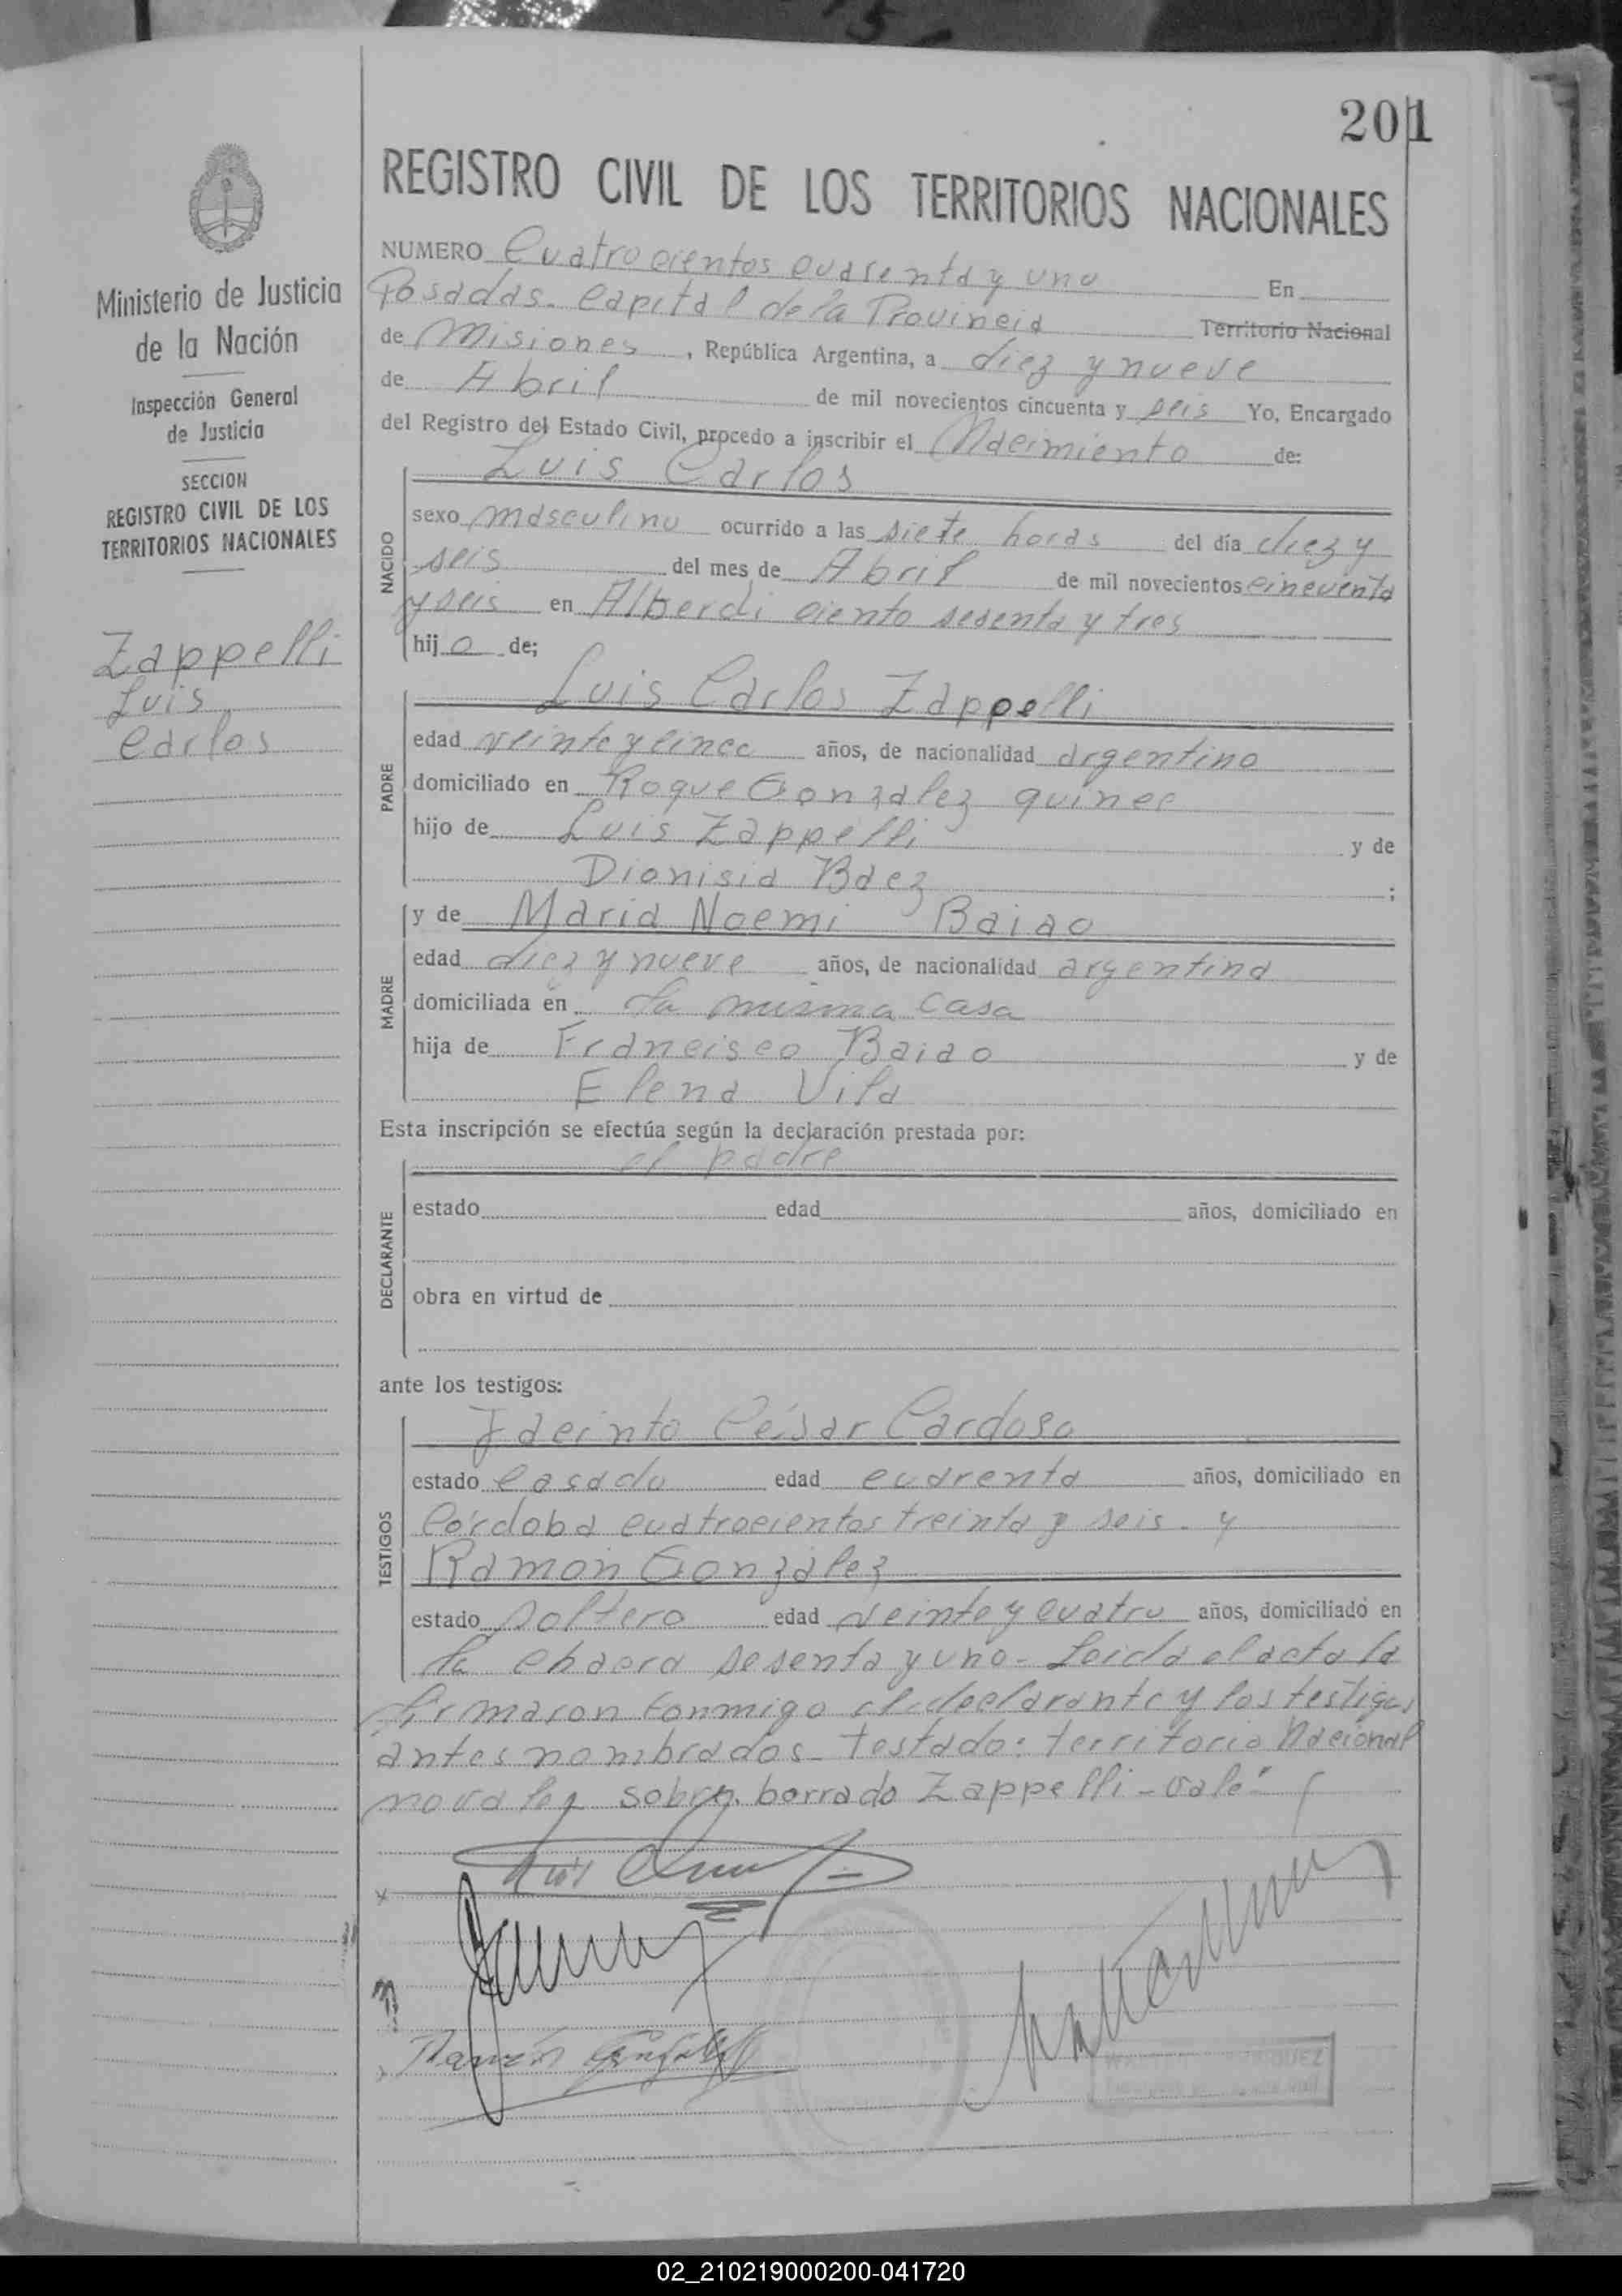 201
REGISTRO CIVIL DE LOS TERRITORIOS NACIONALES
Ministerio de Justicia
de la Nación
Inspección General
de Justicia
SECCION
REGISTRO CIVIL DE LOS
TERRITORIOS NACIONALES
Zappelli
Luis
Carlos
NUMERO Cuatrocientos cuarenta y uno En
Posadas. Capital de la Provincia Territorio Nacional
de Misiones, República Argentina, a diez y nueve
de Abril de mil novecientos cincuenta y seis Yo, Encargado
del Registro del Estado Civil, procedo a inscribir el Nacimiento de:
NACIDO
Luis Carlos
sexo masculino ocurrido a las siete horas del día diez y
seis del mes de Abril de mil novecientos cincuenta
y seis en Alberdi ciento sesenta y tres
hijo de;
PADRE
Luis Carlos Zappelli
edad veinte y cinco años, de nacionalidad argentino
domiciliado en Roque Gonzalez quince
hijo de Luis Zappelli y de
Dionisia Baez ;
MADRE
y de Maria Noemi Baiao
edad diez y nueve años, de nacionalidad argentina
domiciliada en la misma casa
hija de Francisco Baiao y de
Elena Vila
Esta inscripción se efectúa según la declaración prestada por:
DECLARANTE
el padre
estado edad años, domiciliado en
obra en virtud de
ante los testigos:
TESTIGOS
Jacinto César Cardoso
estado casado edad cuarenta años, domiciliado en
Córdoba cuatrocientos treinta y seis. y
Ramón González
estado soltero edad veinte y cuatro años, domiciliado en
la chacra sesenta y uno. Leida el acta la
firmaron conmigo el declarante y los testigos
antes nombrados. Testado: territorio Nacional
no vale y sobre borrado Zappelli - vale"
Ramón González
02_210219000200-041720